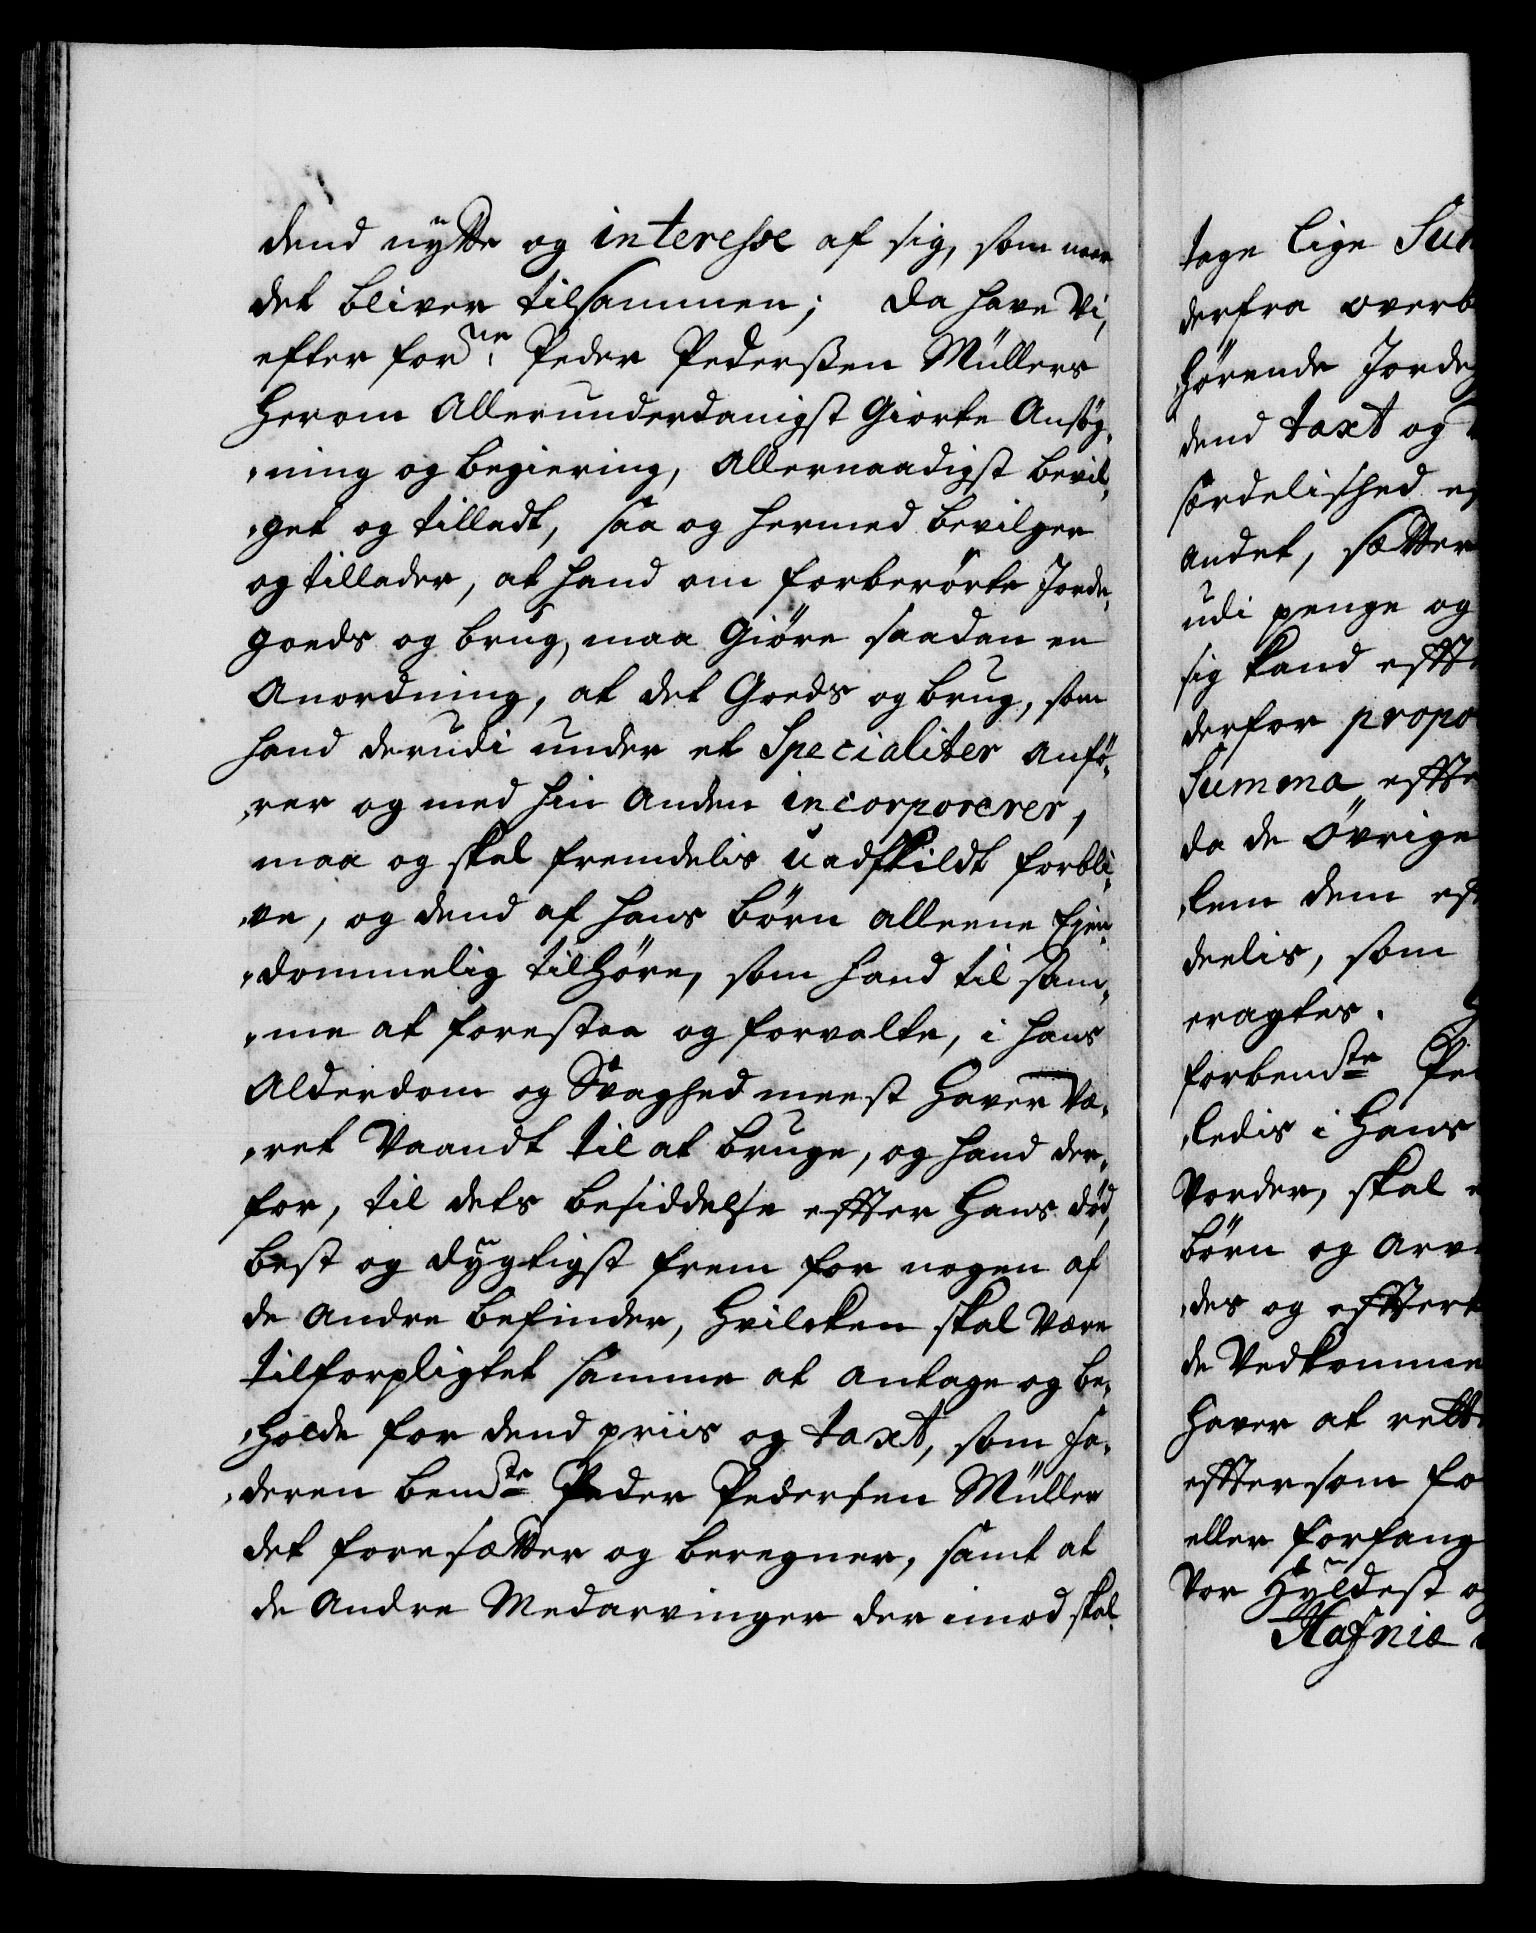 dend nytte og interesse af sig, som naar
det bliver tilsammen; Da have Vi,
efter forne: Peder Pederßen Müllers
herom Allerunderdanigst Giorte Ansøg,
,ning og begiering, Allernaadigst bevil,
,get og tilladt, saa og hermed bevilger
og tillader, at hand om forberørte Jorde,
goeds og brug, maa Giøre saadan en
Anordning, at det Goeds og brug, som
hand derudi under et Specialiter anfø,
,rer og med hin anden incorporerer,
maa og skal fremdelis uadskildt forbli,
,ve, og dend af hans børn alleene Ejen,
,dommelig tilhøre, som hand til sam,
,me at forestaa og forvalte, i hans
Alderdom og Svaghed meest haver væ,
,ret Vaandt til at bruge, og hand der,
for, til dets besiddelse effter hans død,
best og dygtigst frem for nogen af
de andre befinder, hvilcken skal være
tilforpligtet samme at antage og be,
,holde for dend priis og taxt, som fa,
,deren bemdte Peder Pedersen Müller
det foresætter og beregner, samt at
de andre Medarvinger der imod skal
tage lige
derfra
hørende
dend taxt og
særdelished
andet, sætter
udi penge og
sig kand
derfor
Summa
da de øvrige
,lem dem
deelis, som
eragtes.
forbemdte
,ledis i hans
vorder, skal
børn og
,des og
de
haver at
efftersom
eller forfang
Vor Hyldest
Hafniæ